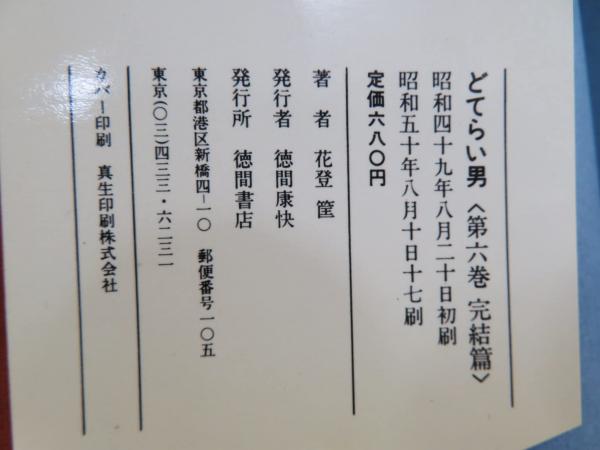 どてらい男〈第六巻 完結篇〉
昭和四十九年八月二十日初刷
昭和五十年八月十日十七刷
定価六八〇円
著者 花登筐
発行者 徳間康快
発行所 徳間書店
東京都港区新橋四ー一〇 郵便番号一〇五
東京(〇三)四三三・六二三一
カバー印刷 真生印刷株式会社